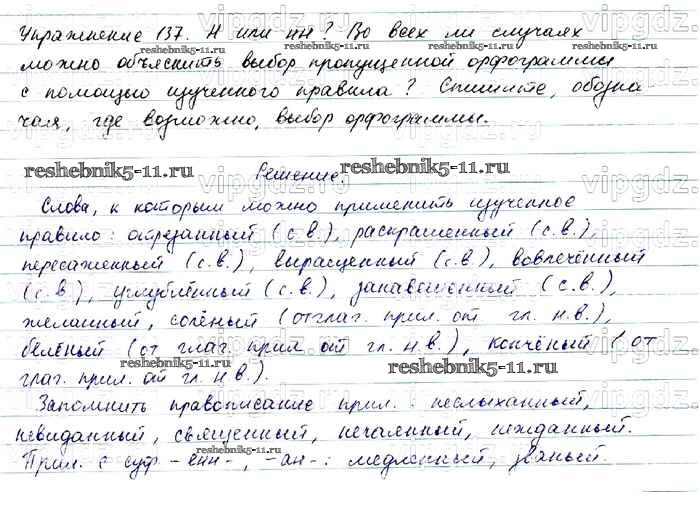 Упражнение 137. Н или нн? Во всех ли случаях
reshebnik5-11.ru reshebnik5-11.ru
можно объяснить выбор пропущенной орфограммы
с помощью изученного правила? Спишите, обозна
чая, где возможно, выбор орфограммы.
reshebnik5-11.ru reshebnik5-11.ru
Решение
Слова, к которым можно применить изученное
правило: отрезанный (с.в.), раскрашенный (с.в.),
пересаженный (с.в.), выращенный (с.в.), вовлечённый
(с.в), углублённый (с.в.), занавешенный (с.в.),
желанный, солёный (отглаг. прил. от гл. н.в.),
белёный (от глаг. прил от гл. н.в.), копчёный (от
глаг. прил. от гл. н.в.).
reshebnik5-11.ru
Запомнить правописание прил.: неслыханный,
невиданный, священный, нечаянный, нежданный.
reshebnik5-11.ru reshebnik5-11.ru
Прил. с суф -енн-, -ан-: медленный, званый.